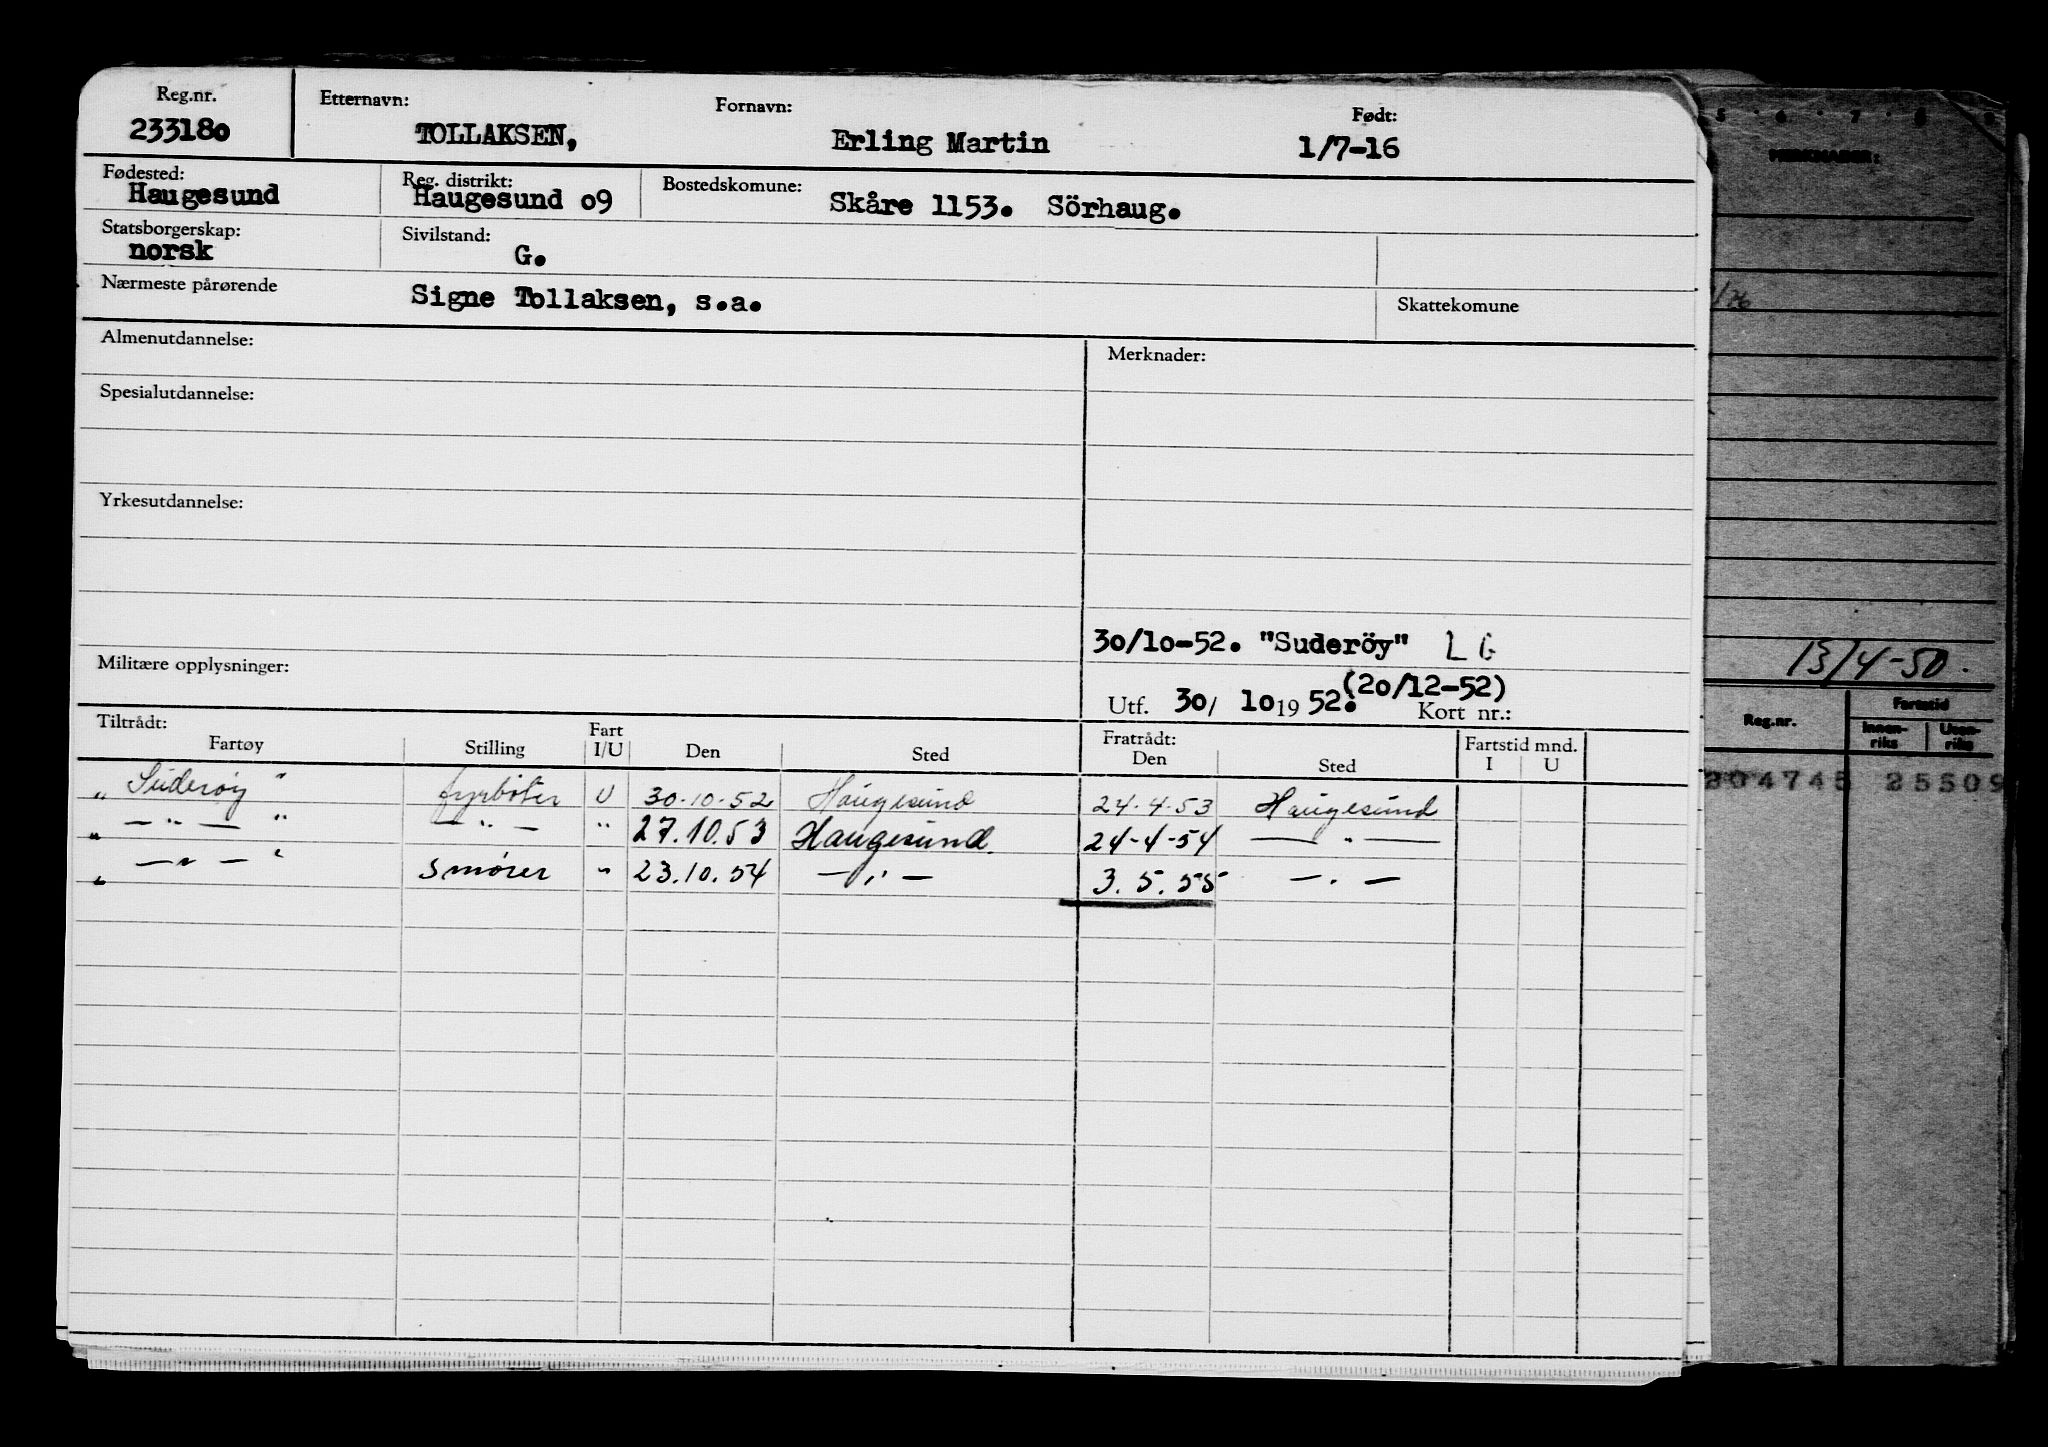 Reg.nr. Etternavn: Fornavn: Født:
233180 TOLLAKSEN, Erling Martin 1/7-16
Fødested: Reg. distrikt: Bostedskomune:
Haugesund Haugesund o9 Skåre 1153. Sörhaug.
Statsborgerskap: Sivilstand:
norsk G.
Nærmeste pårørende Signe Tollaksen, s.a. Skattekomune
Almenutdannelse: Merknader:
Spesialutdannelse:
Yrkesutdannelse:
30/10-52. "Suderöy" L G
Militære opplysninger:
(20/12-52)
Utf. 30/ 10 19 52. Kort nr.:
Tiltrådt: Fratrådt:
Fartøy Stilling Fart I/U Den Sted Den Sted Fartstid mnd. I U
„ Suderøy " fyrbøter U 30-10-52 Haugesund 24-4-53 Haugesund
„ — " — " — " — " 27.10.53 Haugesund. 24-4-54 — " —
„ — " — " Smører " 23.10.54 — " — 3.5.55 — " —
5 6 7 8 9
MERKNADER:
/76
13/4-50.
Reg.nr. Fartstid
Innen-riks Uten-riks
204745 25509